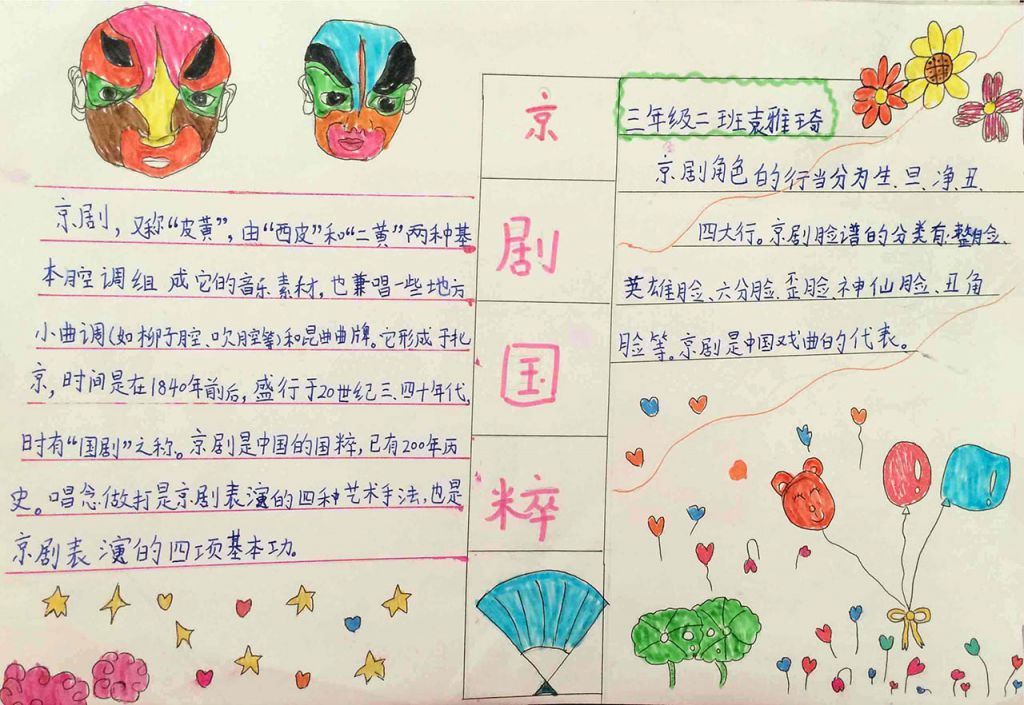 京剧，又称“皮黄”，由“西皮”和“二黄”两种基
本腔调组成它的音乐素材，也兼唱一些地方
小曲调(如柳子腔、吹腔等)和昆曲曲牌。它形成于北
京，时间是在1840年前后，盛行于20世纪三、四十年代，
时有“国剧”之称。京剧是中国的国粹，已有200年历
史。唱念做打是京剧表演的四种艺术手法，也是
京剧表演的四项基本功。
京
剧
国
粹
三年级二班袁雅琦
京剧角色的行当分为生、旦、净、丑、
四大行。京剧脸谱的分类有:整脸、
英雄脸、六分脸、歪脸、神仙脸、丑角
脸等。京剧是中国戏曲的代表。